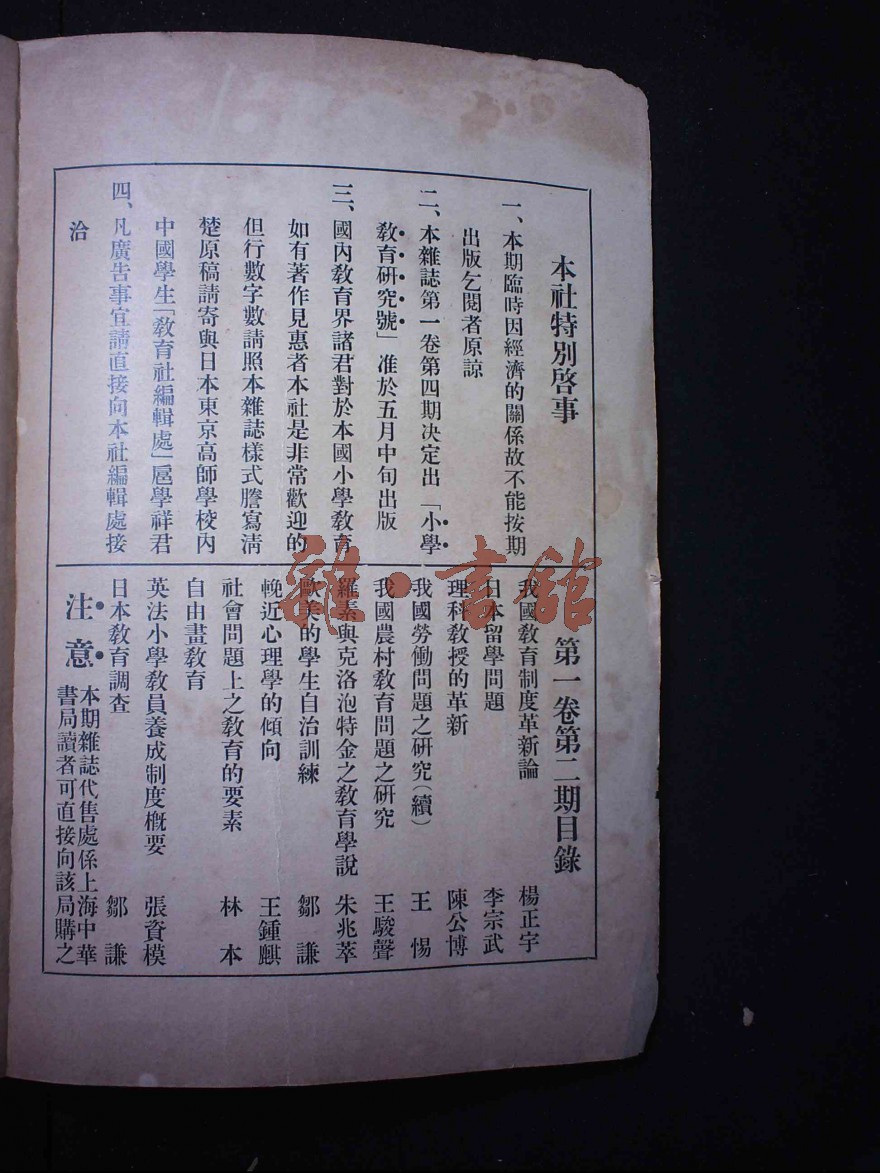 本社特別啓事
一、本期臨時因經濟的關係故不能按期
出版乞閱者原諒
二、本雜誌第一卷第四期決定出「小學
敎育研究號」准於五月中旬出版
三、國內敎育界諸君對於本國小學敎育
如有著作見惠者本社是非常歡迎的
但行數字數請照本雜誌樣式謄寫淸
楚原稿請寄與日本東京高師學校內
中國學生「敎育社編輯處」扈學祥君
四、凡廣告事宜請直接向本社編輯處接
洽
第一卷第二期目錄
我國敎育制度革新論 楊正宇
日本留學問題 李宗武
理科敎授的革新 陳公博
我國勞働問題之研究(續) 王惕
我國農村敎育問題之研究 王駿聲
羅素與克洛泡特金之敎育學說 朱兆萃
歐美的學生自治訓練 鄒謙
輓近心理學的傾向 王鍾麒
社會問題上之敎育的要素 林本
自由畫敎育
英法小學敎員養成制度槪要 張資模
日本敎育調查 鄒謙
注意 本期雜誌代售處係上海中華
書局讀者可直接向該局購之
雜·書館